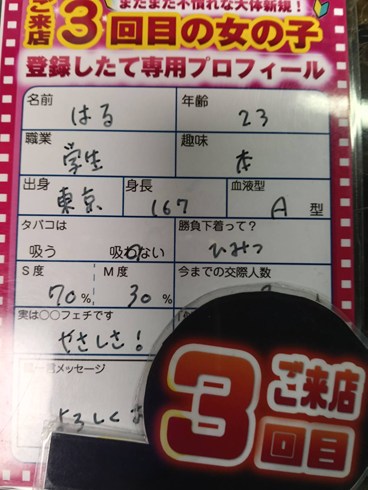 まだまだ不慣れな大体新規！
ご来店3回目の女の子
登録したて専用プロフィール
名前 はる 年齢 23
職業 学生 趣味 本
出身 東京 身長 167 血液型 A 型
タバコは 吸う 吸わない 勝負下着って? ひみつ
S度 70% M度 30% 今までの交際人数
実は○○フェチです やさしさ!
一言メッセージ
よろしく
ご来店
3回目